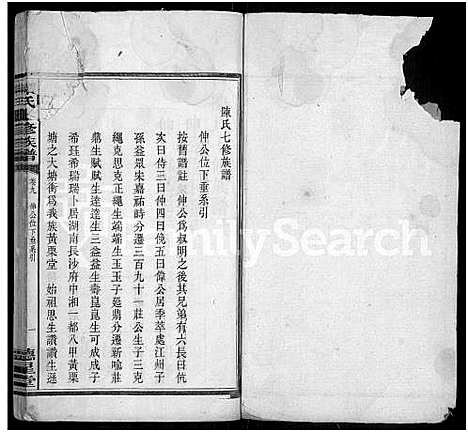 陳氏七修族譜
伸公位下垂系引
按舊譜註 伸公爲叔明之後其兄弟有六長曰伉
次曰侍三曰仲四曰伐五曰偉公居季萃處江州子
孫益眾宋嘉祐時分遷三百九十一莊公生子三克
繩克思克正克生端端生玉玉子莚鼎分遷新喻莊
鼎生賦賦生達達生三益益生壽崑崑生可成成子
希珪希瑞瑞卜居湖南長沙府甲湘一都八甲黃栗
塘之大塘衖爲我族黃栗堂 始祖思生讚讚生遜
氏七修族譜
卷九 伸公位下垂系引
一
德星堂
FamilySearch